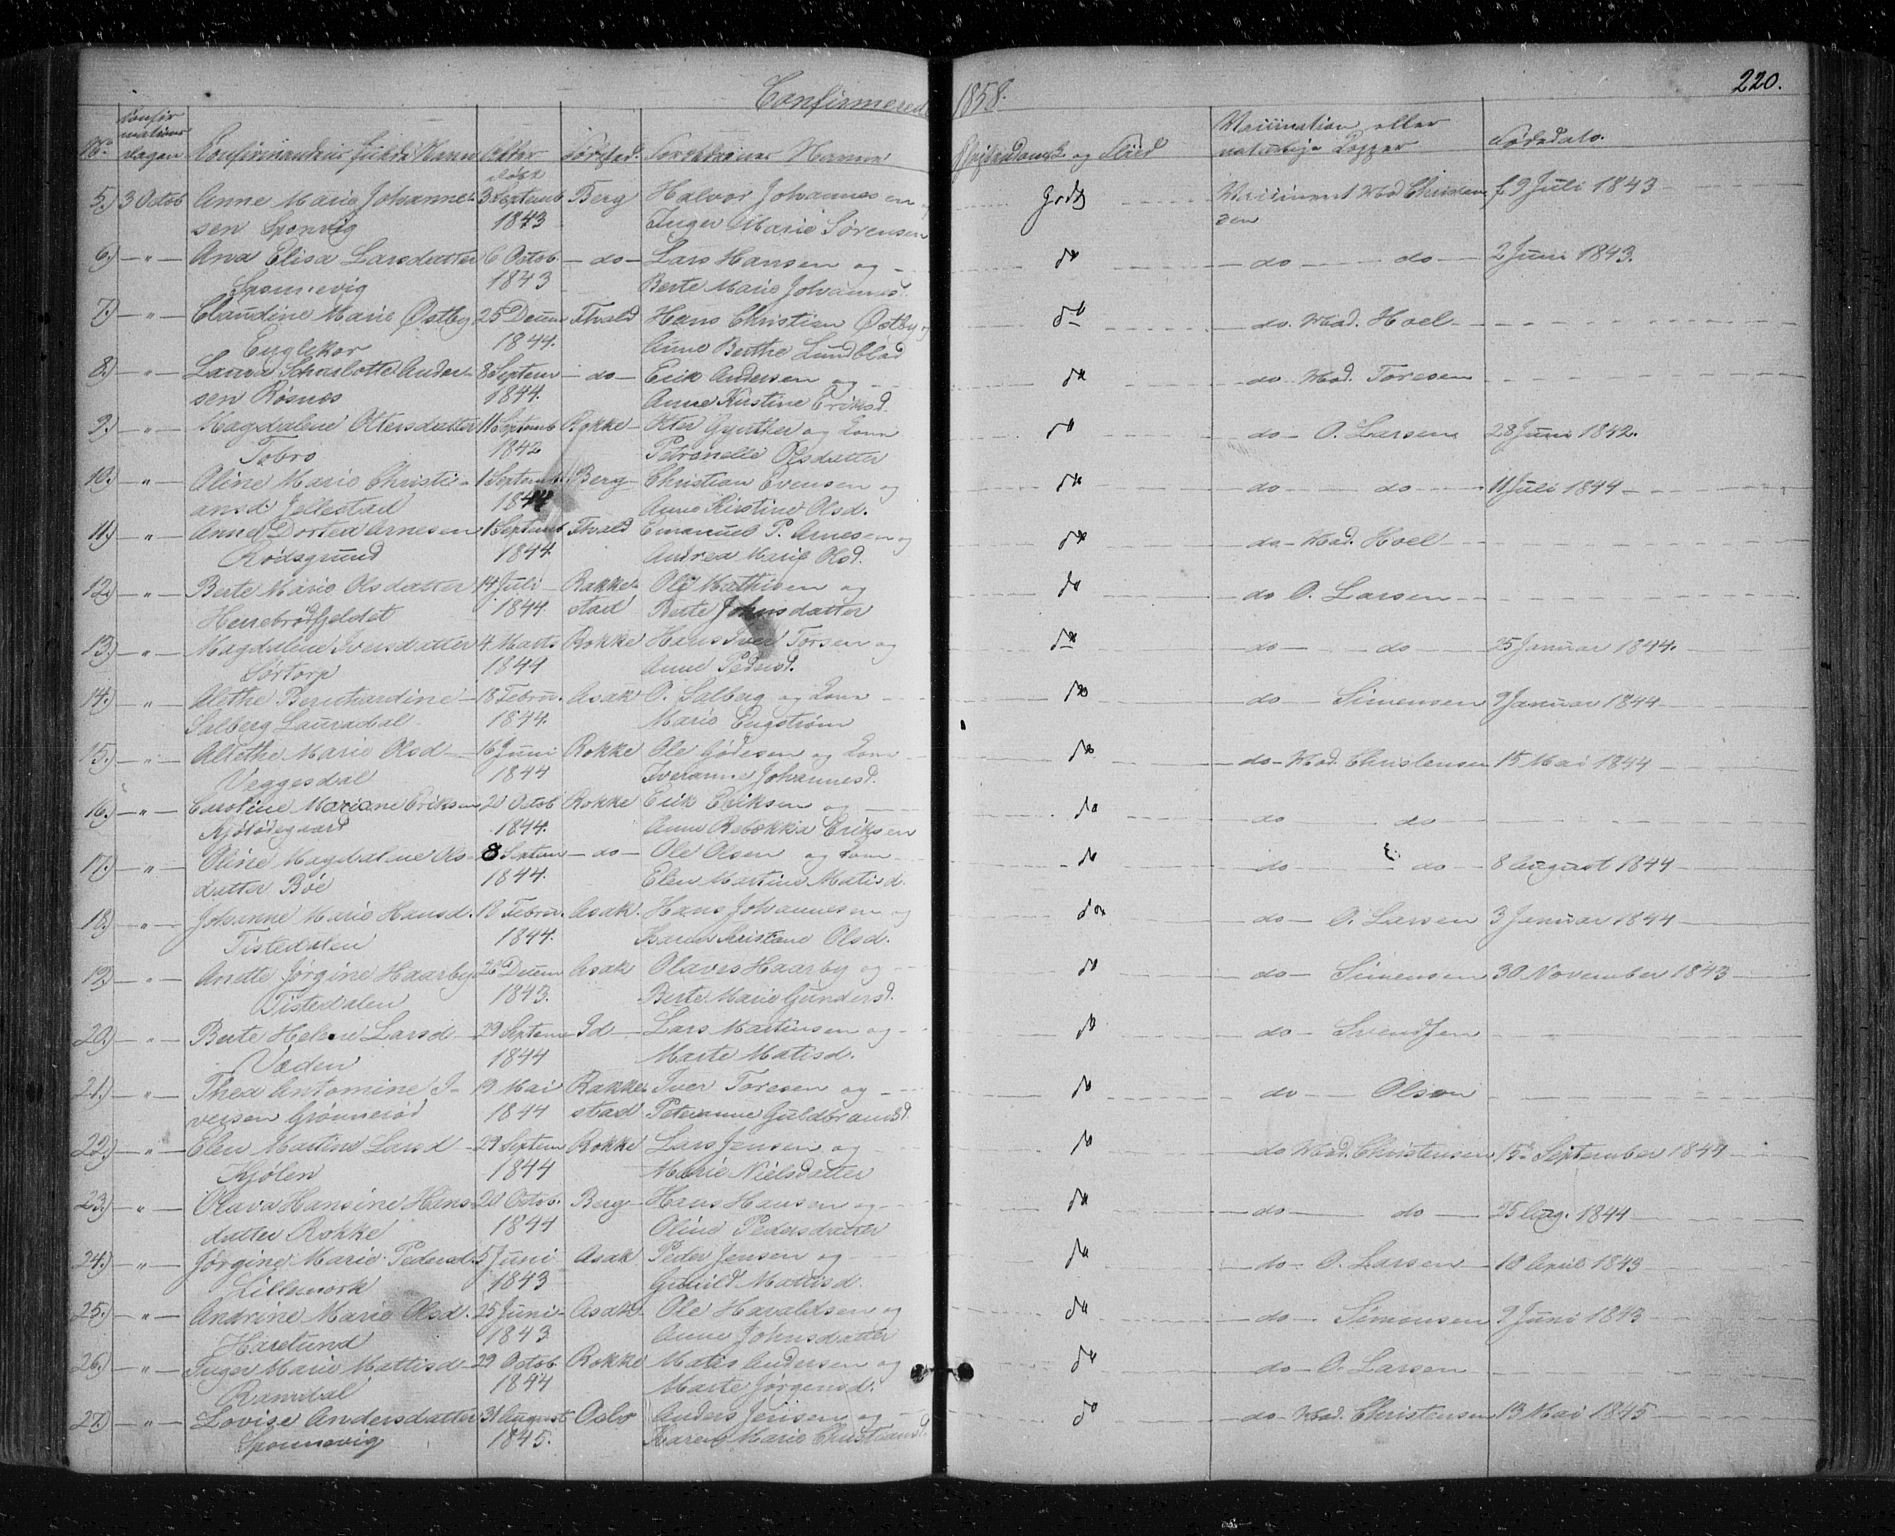 Confirmerede 1858.
220.
No. Konfirmationsdagen Confirmandens fulde Navn Alder Døbt Fødested. Forældrenes Navne Christendomsk. og Flid Vaccination eller naturlige Kopper Fødsdato.
5.) 3 Octob Anne Marie Johanne- 3 Septemb Berg Halvor Johannesen og godt Vaccineret Mad Christen f. 9 Juli 1843
sen Sponvig 1843 Inger Marie Sørensen sen
6.) — " — Ana Elisa Larsdatter 6 Octob — do — Lars Hansen og do — do — do — 2 Juni 1843.
Sponevig 1843 Berte Marie Johannes.
7.) — " — Claudine Marie Østby 25 Decem Fhald Hans Christian Østby og do — do. Mad. Hoel
Englekor 1844. Anne Berthe Lundblad
8.) — " — Laura Scharlotte Ander- 8 Septem — do — Erik Andersen og do — do Mad. Toresen
sen Røsnes 1844. Anne Kirstine Eriksd.
9.) — " — Magdalene Ottersdatter 11 Septemb Rokke Otter Gynther og Kone do — do — O. Larsen 28 Juni 1842.
Tobro 1842 Petronelle Olsdatter
10.) — " — Oline Marie Christi- 1 Septemb Berg Christian Evensen og do — do — do — 11 Juli 1844
ansd. Jellestad 1844 Anne Kirstine Olsd.
11.) — " — Anne Dortea Arnesen 1 Septemb Fhald Emanuel P. Arnesen og do — do — Mad. Hoel
Rødsgrund 1844 Andrea Marie Olsd.
12.) — " — Berte Marie Olsdatter 14 Juli Rakke- Ole Mathisen og do — do O. Larsen
Hennebrødfjeldet 1844. stad Berte Johnsdatter
13.) — " — Magdalene Iversdatter 4 Marts Rokke Hans Iver Torsen og do — do — do — 25 Januar 1844.
Sørtorp 1844 Anne Pedersd.
14.) — " — Alethe Bernhardine 18 Februr. Asak O. Salberg og Kone do — do — Simensen 9 Januar 1844
Salberg Lauradal 1844. Marie Engstrøm
15.) — " — Alethe Marie Olsd 16 Juni Rokke Ole Gødesen og Kone do — do — Mad. Christensen 15 Mai 1844
Veggesdal 1844 Iveranne Johannesd.
16.) — " — Caroline Mariane Eriksen 20 Octob Rokke Erik Eriksen og do — do — do
Kjølødegaard 1844. Anne Rebekkia Eriksen
17.) — " — Oline Magdalene Ols- 8 Septem — do — Ole Olsen og Kone do — do — do — 8 August 1844
datter Böe 1844. Elen Martine Matisd.
18.) — " — Johanne Marie Hansd. 18 Februr. Asak. Hans Johannesen og do — do — O. Larsen 3 Januar 1844
Tistedalen 1844. Karen Kristiane Olsd.
19.) — " — Anette Jørgine Haarby 26 Decem Asak Olaves Haarby og do — do — Simensen 30 November 1843
Tistedalen 1843. Berte Marie Gundersd.
20.) — " — Berte Helene Larsd 29 Septem Id Lars Martinsen og do — do — Svendsen
Væden 1844 Marte Matisd.
21.) — " — Thea Antomine I- 19 Mai Rakke Iver Toresen og do — do — Olson
versen Grønnerød 1844 stad Peteranne Guldbrandsd.
22.) — " — Elen Martine Larsd 29 Septem Rokke Lars Jensen og do — do Mad. Christensen 15de September 1844
Kjølen 1844 Marie Nielsdatter
23.) — " — Olava Hansine Hans- 20 Octob. Berg Hans Hansen og do — do — do — 25 Aug. 1844
datter Rokke 1844 Oline Pedersdatter
24.) — " — Jørgine Marie Pedersd. 5 Juni Asak Peder Jensen og do — do — O. Larsen 18 April 1843
Lillemork 1843 Gunild Mattisd.
25.) — " — Andrine Marie Olsd. 25 Juni Asak Ole Haraldsen og do — do — Simonsen 9 Juni 1843
Harelund 1843 Anne Johnsdatter
26.) — " — Inger Marie Mattisd 29 Octob Rokke Matis Andersen og do — do — O. Larsen
Ramdal 1844 Marte Jørgensd.
27.) — " — Lovise Andersdatter 31 August Oslo Anders Jensen og do — do — Mad. Christensen 13 Mai 1845
Sponnevig 1845. Karen Marie Christiansd.